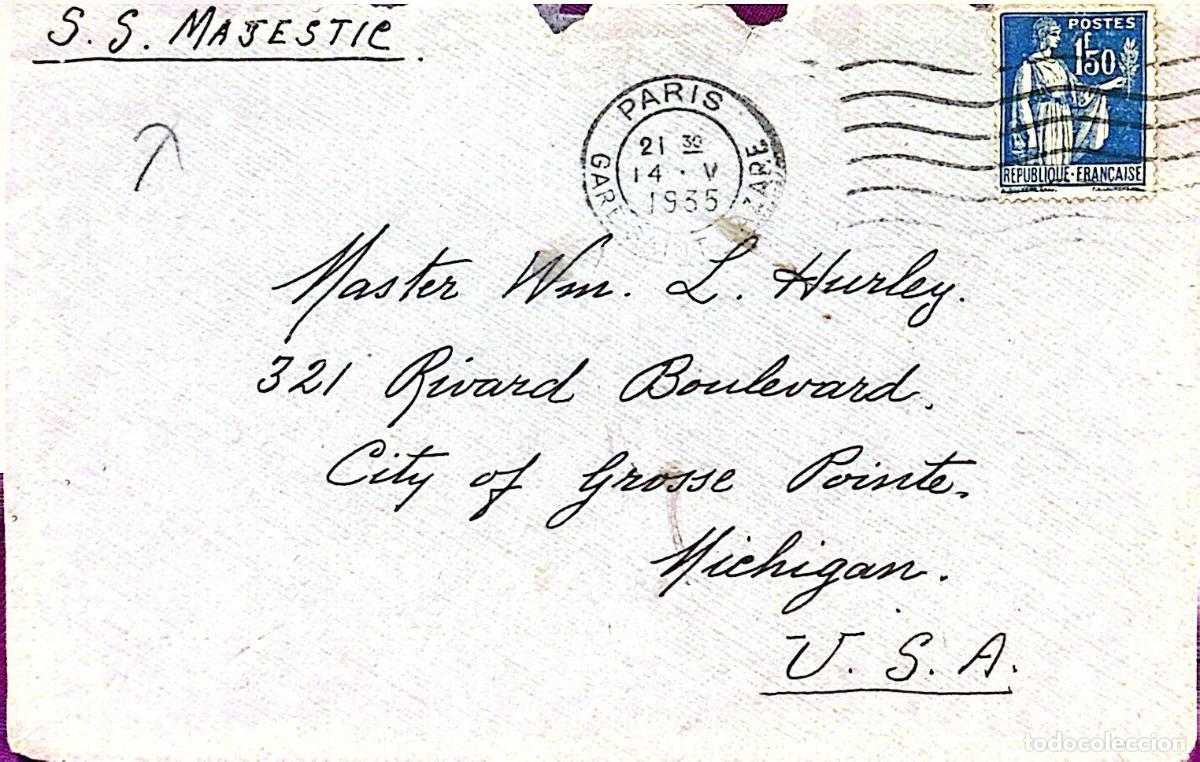 S. S. MAJESTIC.
POSTES
1F50
REPUBLIQUE · FRANÇAISE
PARIS
21 30
14 · V
1935
GARE
Master Wm. L. Hurley.
321 Rivard Boulevard.
City of Grosse Pointe.
Michigan.
U. S. A.
todocoleccion